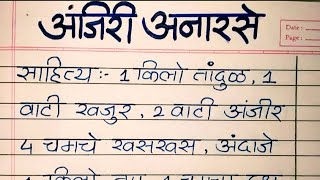 अंजिरी अनारसे
Date:-
Page:-
साहित्य:- 1 किलो तांदुळ, 1
वाटी खजुर, 2 वाटी अंजीर
4 चमचे खसखस, अंदाजे